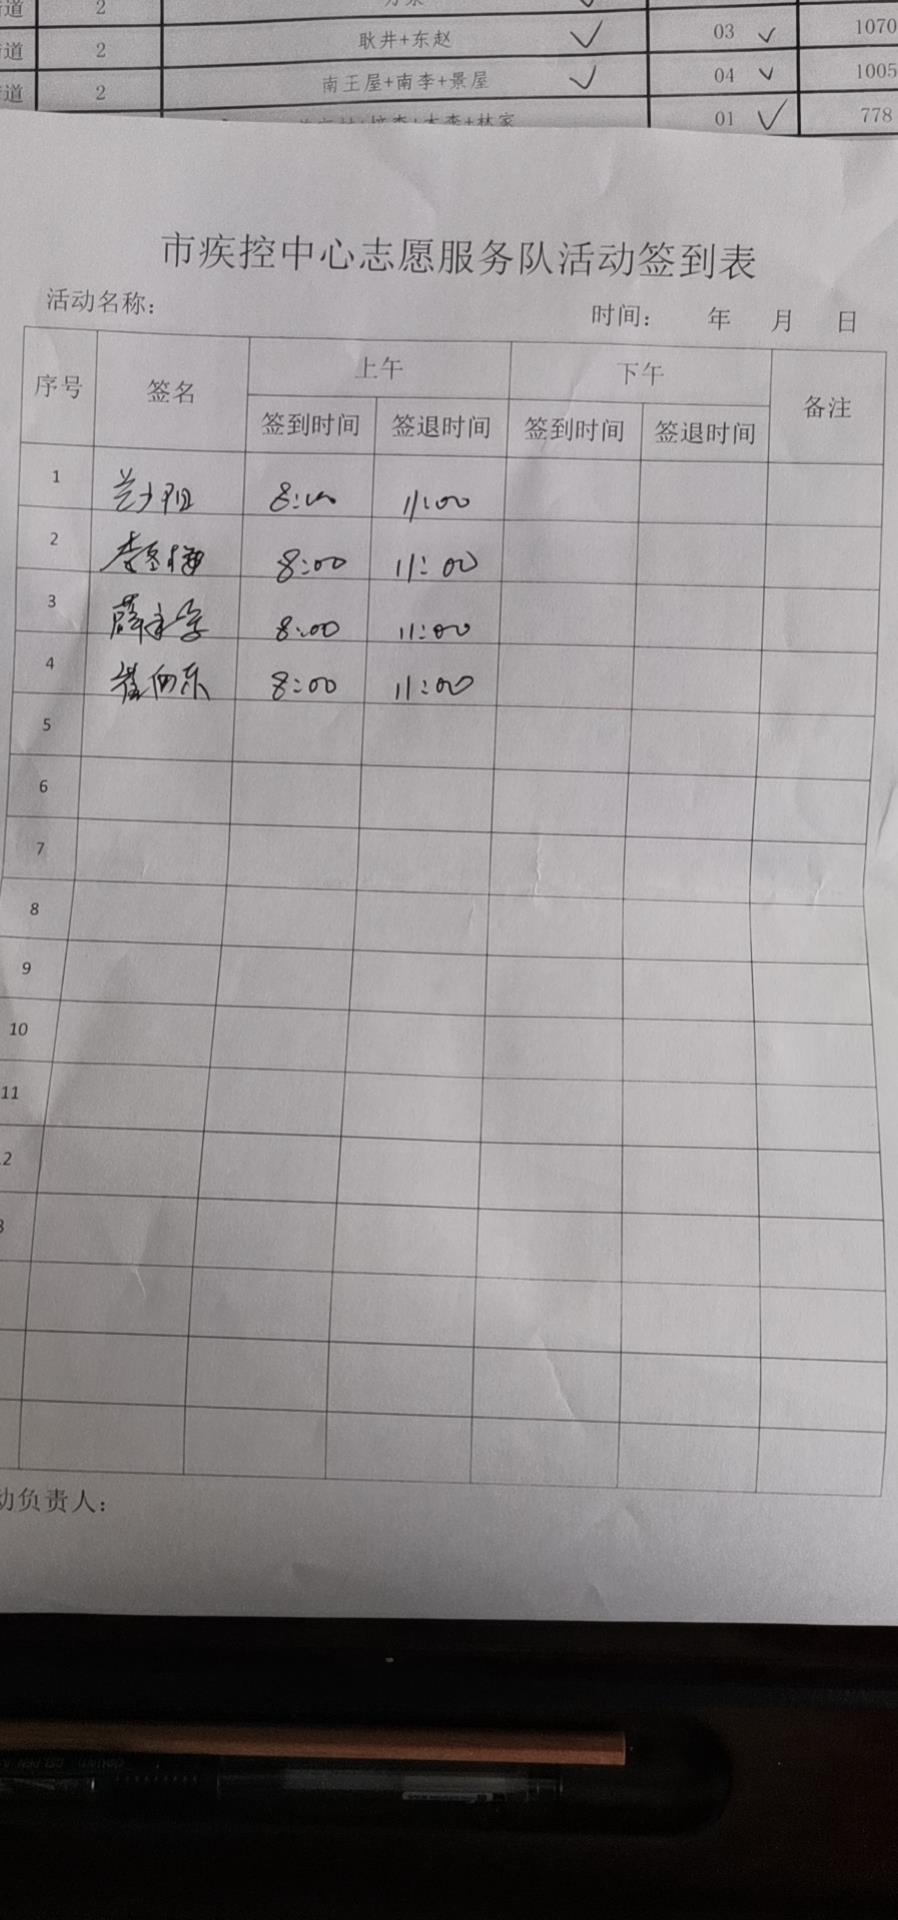 道 2
道 2 耿井+东赵 ✓ 03 ✓ 1070
道 2 南王屋+南李+景屋 ✓ 04 ✓ 1005
01 ✓ 778
市疾控中心志愿服务队活动签到表
活动名称： 时间： 年 月 日
序号 签名 上午 下午 备注
签到时间 签退时间 签到时间 签退时间
1 8:00 11:00
2 8:00 11:00
3 8:00 11:00
4 崔向东 8:00 11:00
5
6
7
8
9
10
11
动负责人：